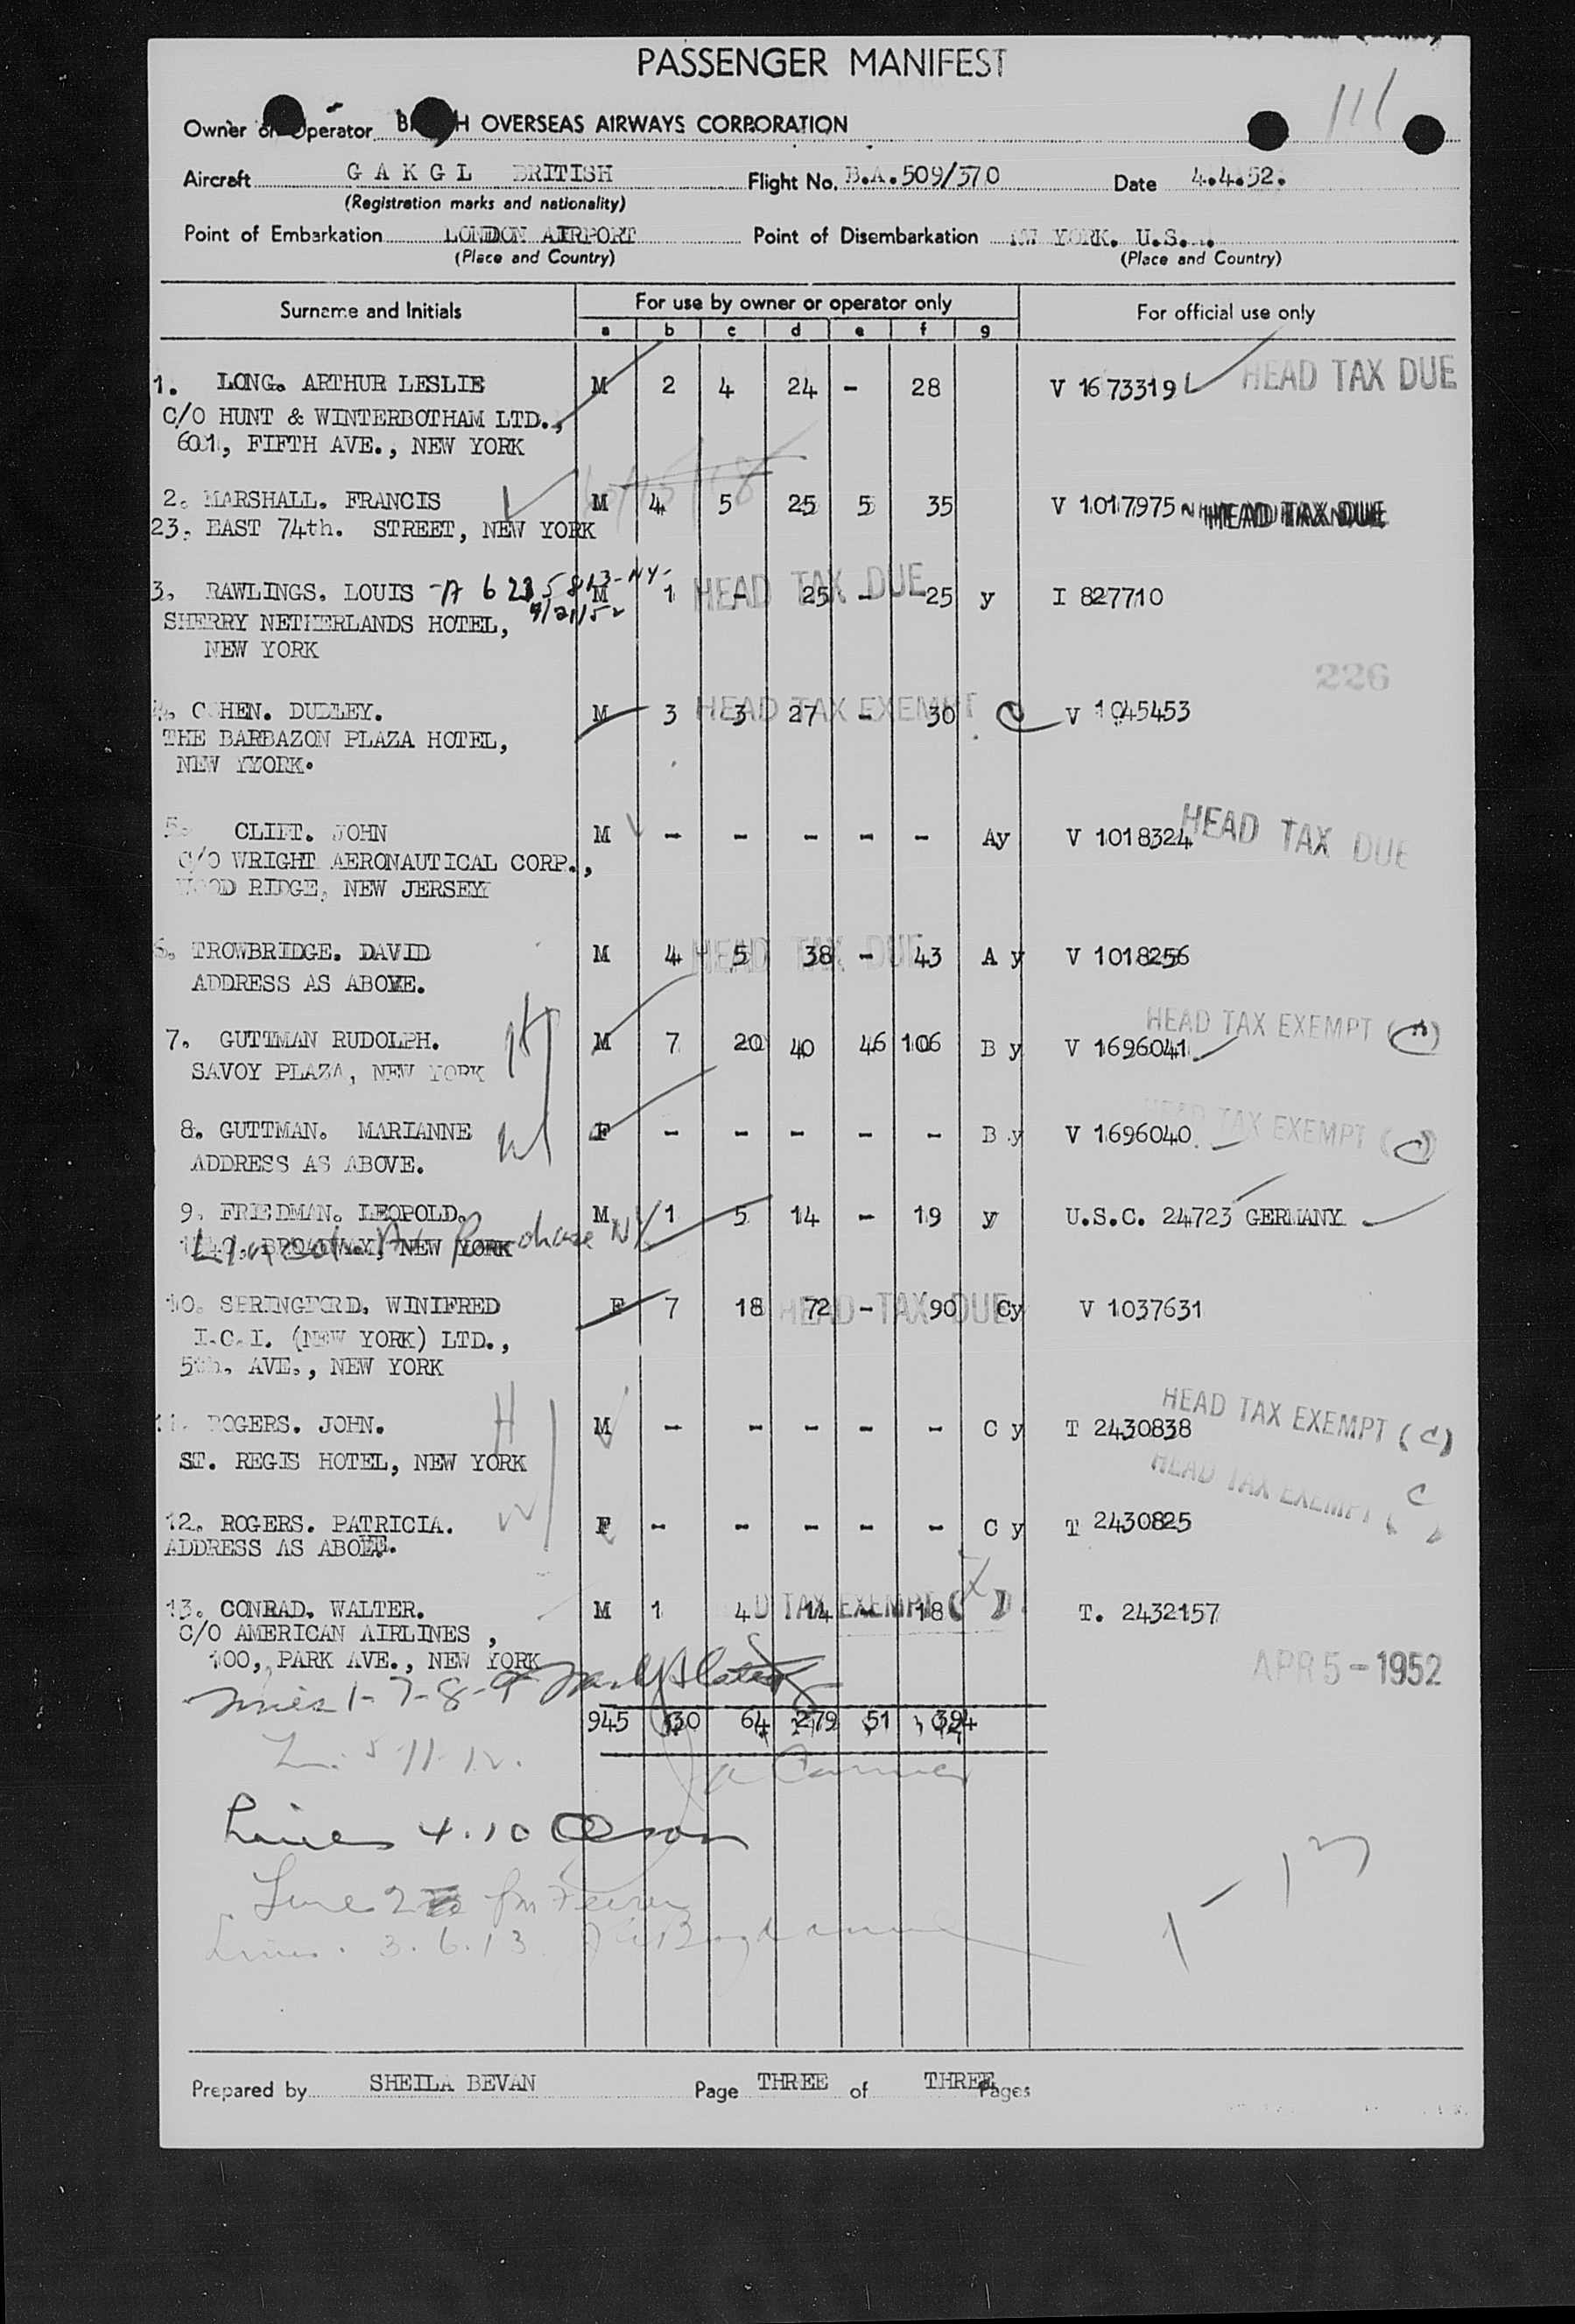 PASSENGER MANIFEST
111
Owner or Operator B H OVERSEAS AIRWAYS CORPORATION
Aircraft G A K G L BRITISH Flight No. B.A.509/370 Date 4.4.52.
(Registration marks and nationality)
Point of Embarkation LONDON AIRPORT Point of Disembarkation YORK. U.S.
(Place and Country) (Place and Country)
Surname and Initials For use by owner or operator only For official use only
a b c d e f g
1. LONG. ARTHUR LESLIE M 2 4 24 - 28 V 1673319 HEAD TAX DUE
C/O HUNT & WINTERBOTHAM LTD.,
601, FIFTH AVE., NEW YORK
2. MARSHALL. FRANCIS M 4 5 25 5 35 V 1017975 HEAD TAX DUE
23, EAST 74th. STREET, NEW YORK
3. RAWLINGS. LOUIS M 1 - 25 - 25 y I 827710
HEAD TAX DUE
SHERRY NETHERLANDS HOTEL,
NEW YORK
226
4. COHEN. DUDLEY. M 3 3 27 - 30 V 1045453
HEAD TAX EXEMPT
THE BARBAZON PLAZA HOTEL,
NEW YYORK.
5. CLIFT. JOHN M - - - - - Ay V 1018324 HEAD TAX DUE
C/O WRIGHT AERONAUTICAL CORP.,
WOOD RIDGE, NEW JERSEY
6. TROWBRIDGE. DAVID M 4 5 38 - 43 A y V 1018256
HEAD TAX DUE
ADDRESS AS ABOVE.
7. GUTTMAN RUDOLPH. M 7 20 40 46 106 B y V 1696041 HEAD TAX EXEMPT
SAVOY PLAZA, NEW YORK
8. GUTTMAN. MARIANNE F - - - - - B y V 1696040 HEAD TAX EXEMPT (C)
ADDRESS AS ABOVE.
9. FRIEDMAN. LEOPOLD. M 1 5 14 - 19 y U.S.C. 24723 GERMANY
BROADWAY, NEW YORK Purchase NY
10. SPRINGFORD. WINIFRED F 7 18 72 - 90 Cy V 1037631
HEAD TAX DUE
I.C.I. (NEW YORK) LTD.,
5th. AVE., NEW YORK
11. ROGERS. JOHN. M - - - - - C y T 2430838 HEAD TAX EXEMPT (C)
ST. REGIS HOTEL, NEW YORK
12. ROGERS. PATRICIA. F - - - - - C y T 2430825 HEAD TAX EXEMPT (C)
ADDRESS AS ABOVE.
13. CONRAD. WALTER. M 1 4 14 - 18 T. 2432157
D TAX EXEMPT
C/O AMERICAN AIRLINES ,
100, PARK AVE., NEW YORK
APR 5 - 1952
Lines 1-7-8-9
945 30 64 279 51 394
11 12.
Lines 4.10
Line 2
Lines. 3.6.13
1 - 13
Prepared by SHEILA BEVAN Page THREE of THREE Pages